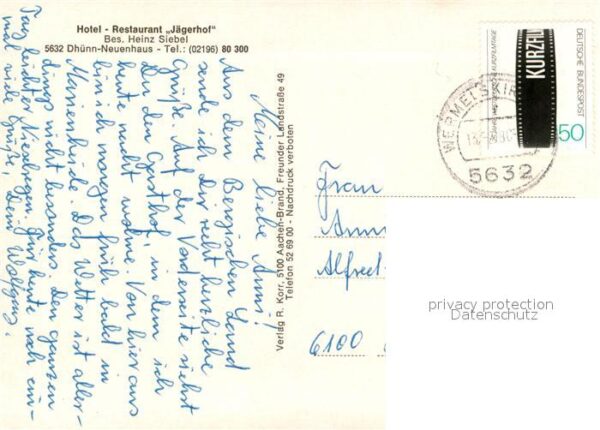 Hotel - Restaurant „Jägerhof"
Bes. Heinz Siebel
5632 Dhünn-Neuenhaus - Tel.: (02196) 80 300
Meine liebe Anni!
Aus dem Bergischen Land
sende ich Dir recht herzliche
Grüße. Auf der Vorderseite siehst
Du den Gasthof, in dem ich
heute nacht wohne. Von hier aus
bin ich morgen früh bald in
Marienheide. Das Wetter ist aller-
dings nicht besonders. Den ganzen
Tag leichter Nieselregen. Für heute noch ein-
mal viele Grüße, Dein Wolfgang.
Verlag R. Korr, 5100 Aachen-Brand, Freunder Landstraße 49
Telefon 52 69 00 - Nachdruck verboten
KURZFI
DEUTSCHE BUNDESPOST
50
WERMELSKIR
5632
Frau
Anni
Alfred-
6100
privacy protection
Datenschutz